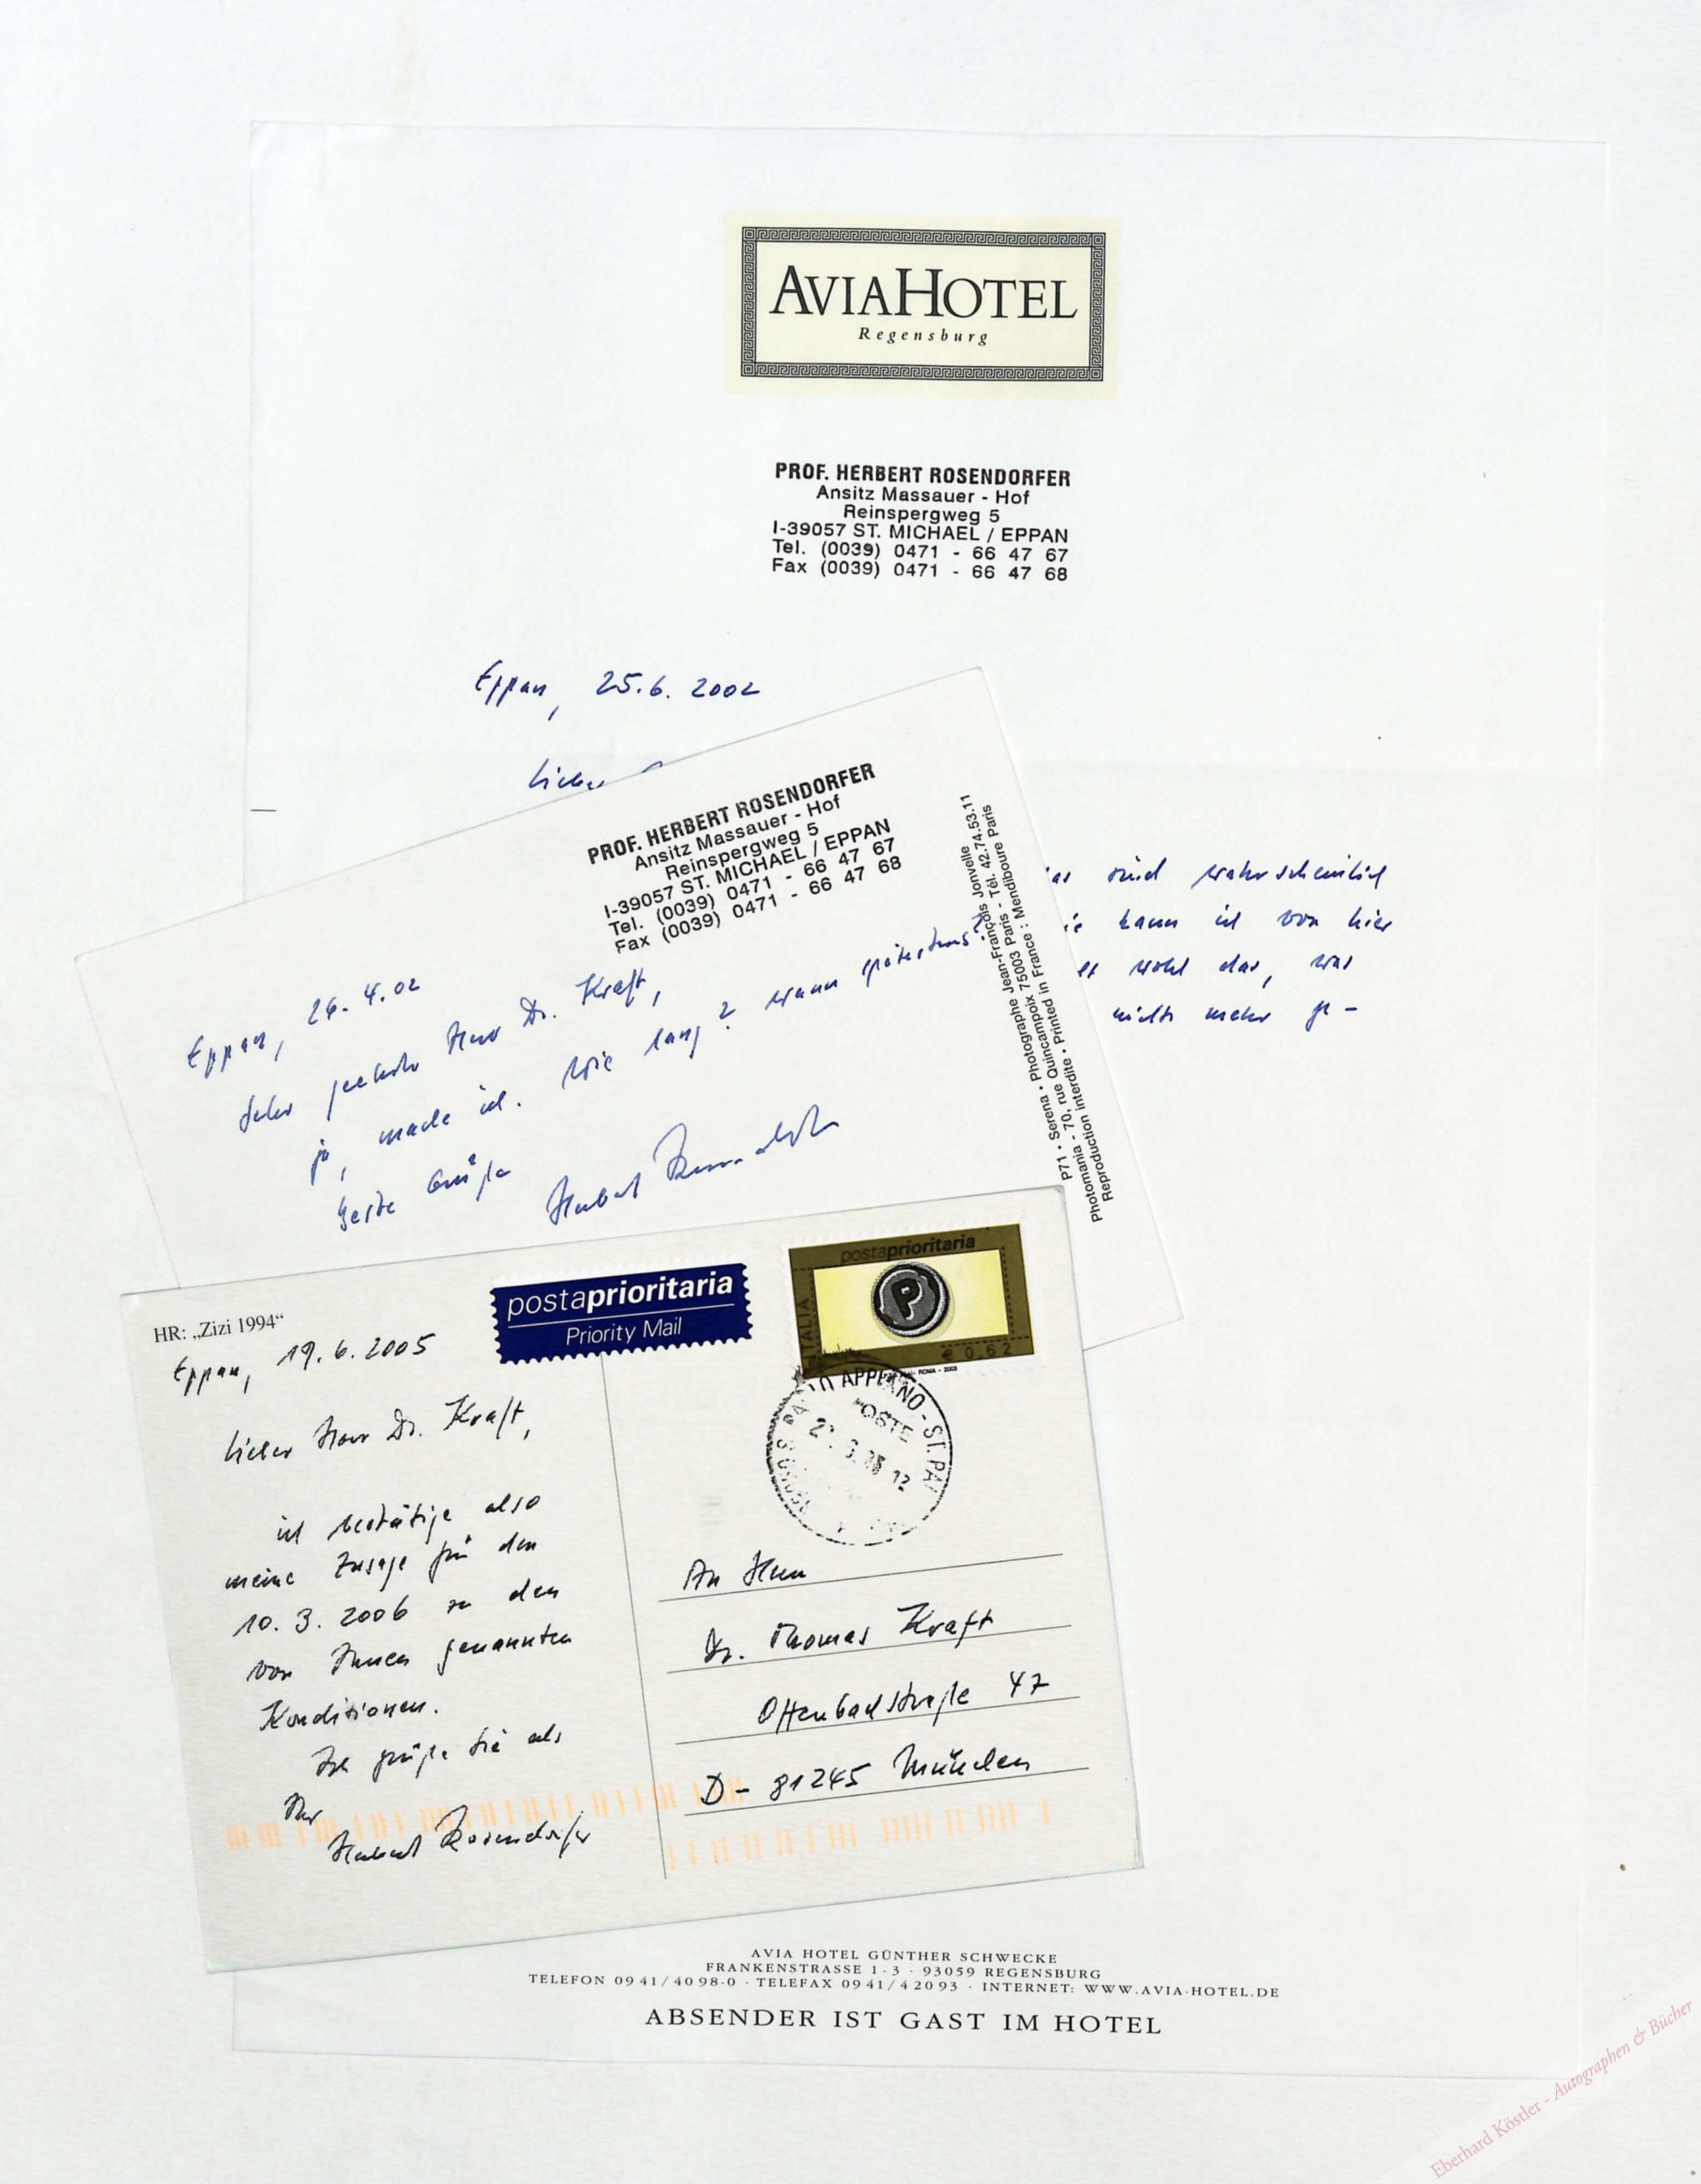 AVIAHOTEL
Regensburg
PROF. HERBERT ROSENDORFER
Ansitz Massauer - Hof
Reinspergweg 5
I-39057 ST. MICHAEL / EPPAN
Tel. (0039) 0471 - 66 47 67
Fax (0039) 0471 - 66 47 68
Eppan, 25.6. 2002
Lieber
sind wahrscheinlich
kann ich von hier
wohl das, was
nichts mehr ge-
PROF. HERBERT ROSENDORFER
Ansitz Massauer - Hof
Reinspergweg 5
I-39057 ST. MICHAEL / EPPAN
Tel. (0039) 0471 - 66 47 67
Fax (0039) 0471 - 66 47 68
Eppan, 26.4.02
Sehr geehrter Herr Dr. Kraft,
ja, mache ich. Wie lang? Wann spätestens?
Beste Grüße
Herbert Rosendorfer
P71 • Serena • Photographe Jean-François Jonvelle
Photomania - 70, rue Quincampoix 75003 Paris - Tél. 42.74.53.11
Reproduction interdite • Printed in France : Mendiboure Paris
HR: „Zizi 1994“
postaprioritaria
Priority Mail
postaprioritaria
P
ITALIA
€ 0,62
ROMA - 2003
APPIANO - ST. PA
POSTE
12
Eppan, 19.6.2005
Lieber Herr Dr. Kraft,
ich bestätige also
meine Zusage für den
10.3.2006 zu den
von Ihnen genannten
Konditionen.
Ich grüße Sie als
Ihr
Herbert Rosendorfer
An Herrn
Dr. Thomas Kraft
Offenbachstraße 47
D- 81245 München
AVIA HOTEL GÜNTHER SCHWECKE
FRANKENSTRASSE 1-3 · 93059 REGENSBURG
TELEFON 09 41/40 98-0 · TELEFAX 09 41/4 20 93 · INTERNET: WWW.AVIA-HOTEL.DE
ABSENDER IST GAST IM HOTEL
Eberhard Köstler - Autographen & Bücher